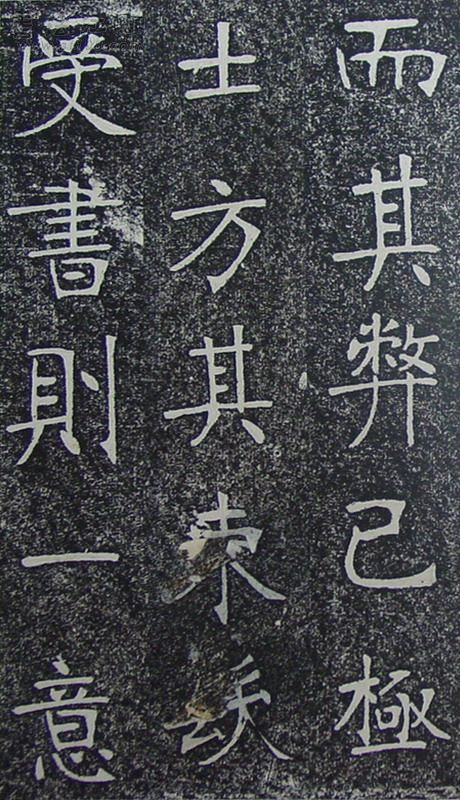 而其弊已極
士方其束髮
受書則一意